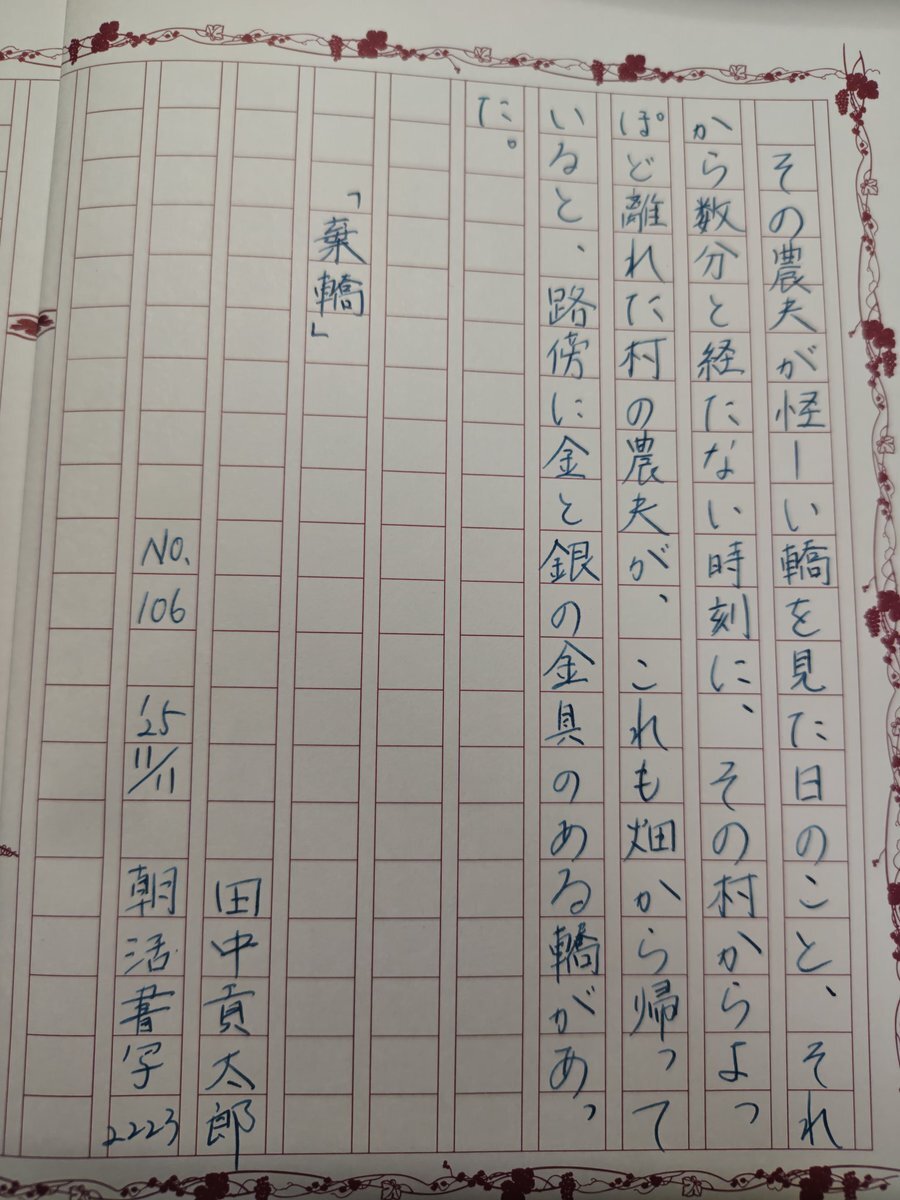 その農夫が怪しい轎を見た日のこと、それ
から数分と経たない時刻に、その村からよっ
ぽど離れた村の農夫が、これも畑から帰って
いると、路傍に金と銀の金具のある轎があっ
た。
「棄轎」
田中貢太郎
No. 106 '25 11/11 朝活書写 2223